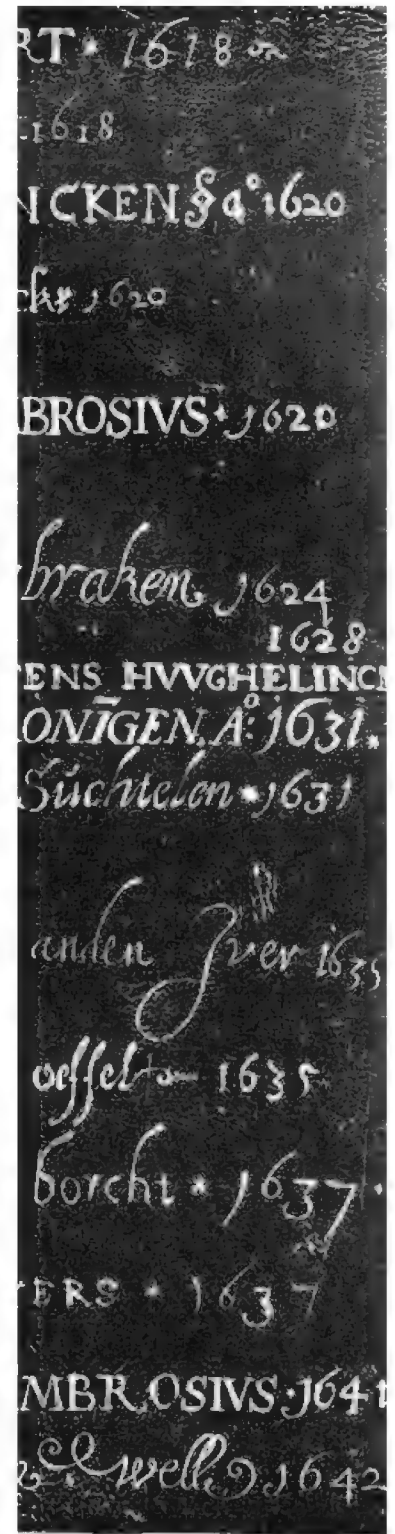 RT · 1618
1618
NCKEN § a° 1620
ckx 1620
BROSIVS · 1620
braken 1624
1628
ENS HVVGHELINCK
ONIGEN. A°: 1631.
Suchtelen · 1631
anden Yver 1635
oeffel 1635
borcht · 1637 ·
ERS · 1637
MBROSIVS · 1641
well 1642